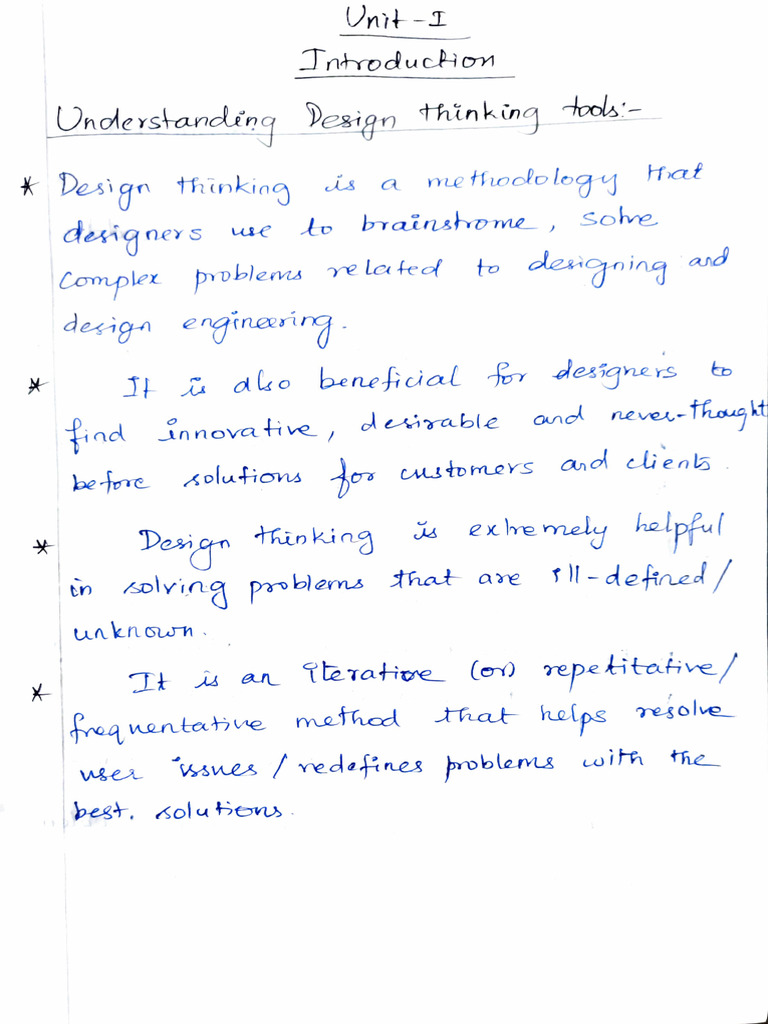 Unit-I
Introduction
Understanding Design thinking tools:-
* Design thinking is a methodology that
designers use to brainstrome, solve
complex problems related to designing and
design engineering.
* It is also beneficial for designers to
find innovative, desirable and never-thought
before solutions for customers and clients.
* Design thinking is extremely helpful
in solving problems that are ill-defined/
unknown.
* It is an iterative (or) repetitative/
frequentative method that helps resolve
user issues/redefines problems with the
best. solutions.